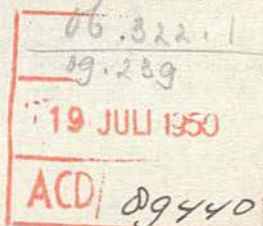 06.322.1
09.239
19 JULI 1950
ACD/ 89440